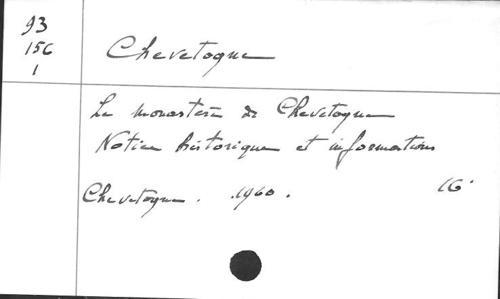 93
156
1
Chevetogne
Le monastère de Chevetogne
Notice historique et informations
Chevetogne . 1960 . 16°